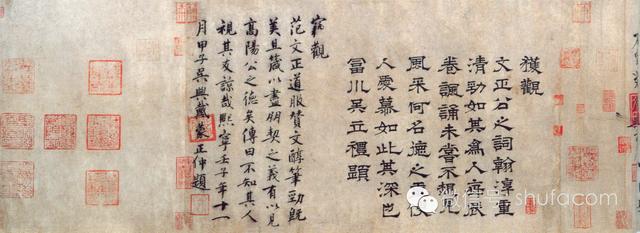 獲觀
文正公之詞翰淳重
清勁如其為人
卷諷誦未嘗不想見
風采何名德之重使
人愛慕如此其深也
冨川吳立禮題
觀
范文正道服贊文醇筆勁既
美且箴以盡朋契之義有以見
高陽公之德矣傳曰不知其人
視其友諒哉熙寧壬子年十一
月甲子吳興戴蒙正仲題
微信号: shufacom